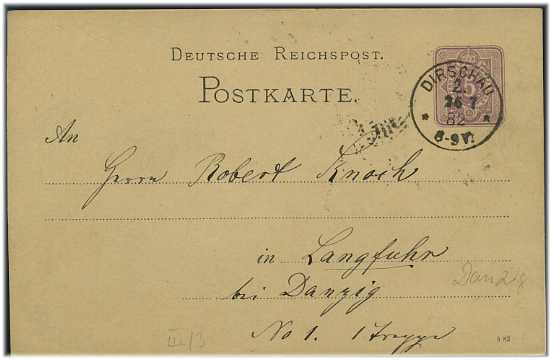 DEUTSCHE REICHSPOST.
POSTKARTE.
DIRSCHAU
2.
26 7
82
* *
6-9V.
5
An
Herrn Robert Knoch
in Langfuhr
bei Danzig
Danzig
No 1. 1 treppe
III/3